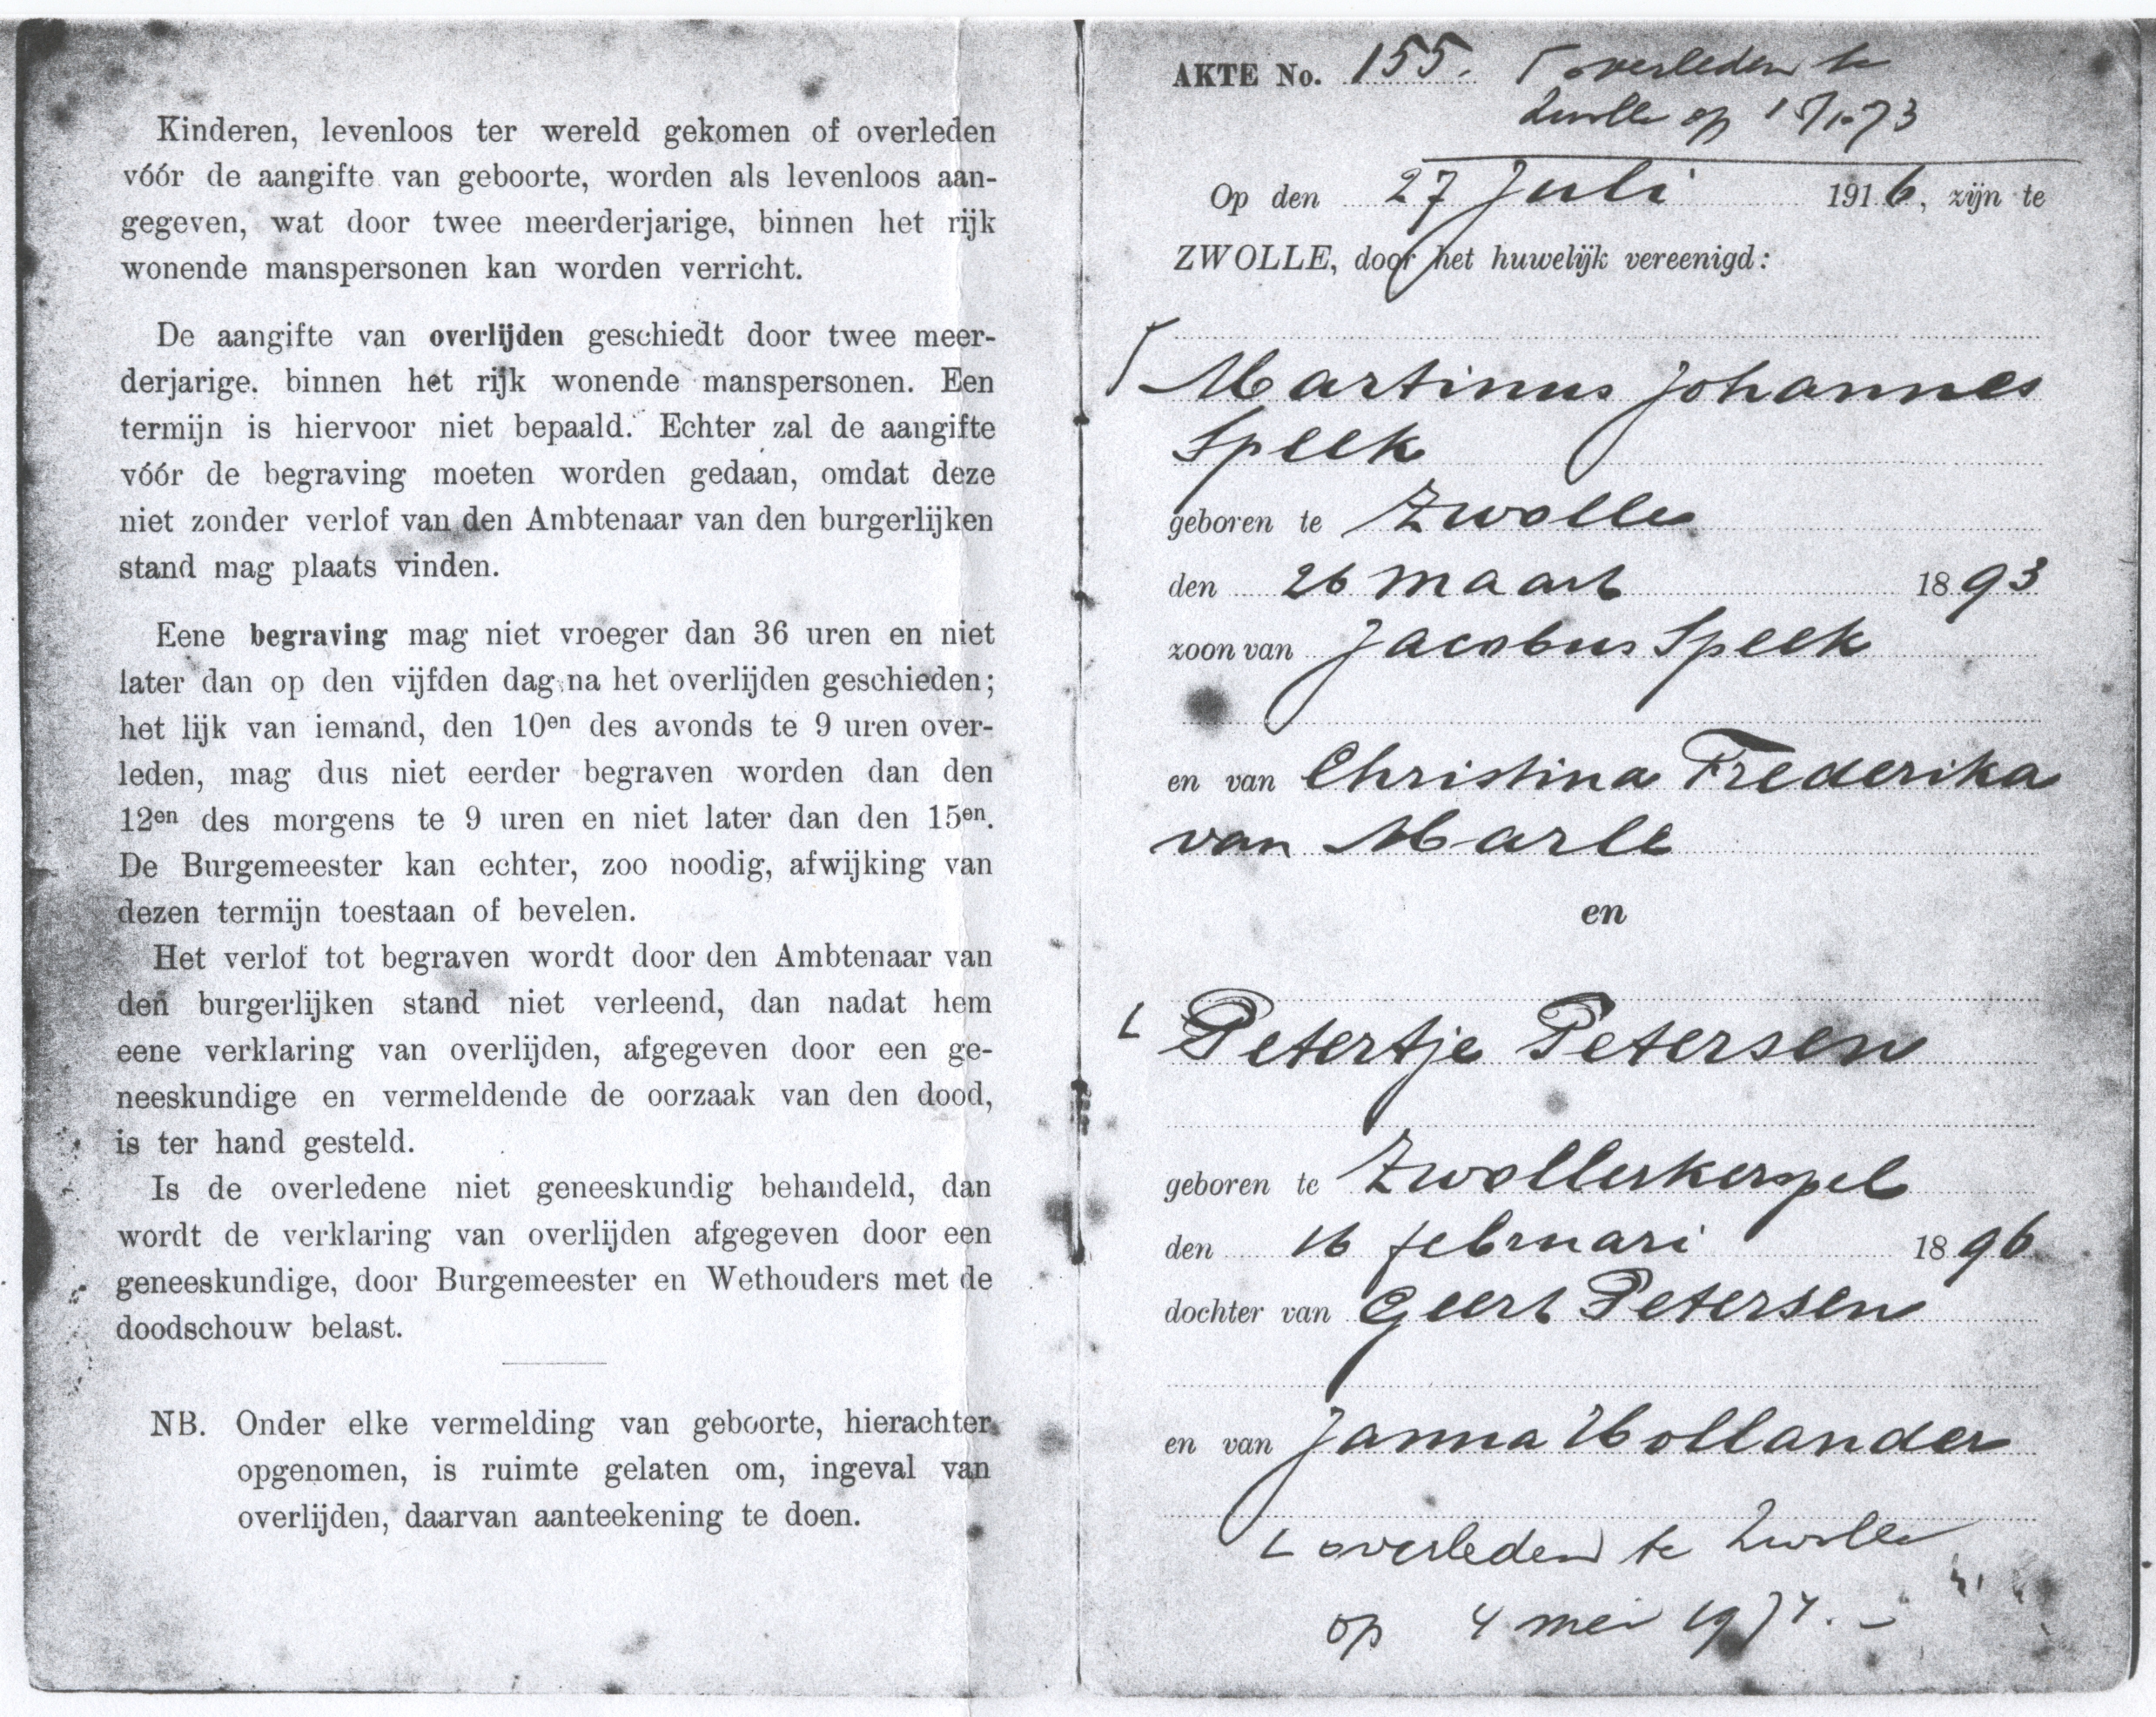 Kinderen, levenloos ter wereld gekomen of overleden
vóór de aangifte van geboorte, worden als levenloos aan-
gegeven, wat door twee meerderjarige, binnen het rijk
wonende manspersonen kan worden verricht.
De aangifte van overlijden geschiedt door twee meer-
derjarige, binnen het rijk wonende manspersonen. Een
termijn is hiervoor niet bepaald. Echter zal de aangifte
vóór de begraving moeten worden gedaan, omdat deze
niet zonder verlof van den Ambtenaar van den burgerlijken
stand mag plaats vinden.
Eene begraving mag niet vroeger dan 36 uren en niet
later dan op den vijfden dag na het overlijden geschieden;
het lijk van iemand, den 10en des avonds te 9 uren over-
leden, mag dus niet eerder begraven worden dan den
12en des morgens te 9 uren en niet later dan den 15en.
De Burgemeester kan echter, zoo noodig, afwijking van
dezen termijn toestaan of bevelen.
Het verlof tot begraven wordt door den Ambtenaar van
den burgerlijken stand niet verleend, dan nadat hem
eene verklaring van overlijden, afgegeven door een ge-
neeskundige en vermeldende de oorzaak van den dood,
is ter hand gesteld.
Is de overledene niet geneeskundig behandeld, dan
wordt de verklaring van overlijden afgegeven door een
geneeskundige, door Burgemeester en Wethouders met de
doodschouw belast.
NB. Onder elke vermelding van geboorte, hierachter
opgenomen, is ruimte gelaten om, ingeval van
overlijden, daarvan aanteekening te doen.
AKTE No. 155. overleden te
Zwolle op
Op den 27 Juli 1916, zijn te
ZWOLLE, door het huwelijk vereenigd:
Martinus Johannes
Speek
geboren te Zwolle
den 26 maart 1893
zoon van Jacobus Speek
en van Christina Frederika
van Marle
en
Petertje Petersen
geboren te Zwollerkerspel
den 16 februari 1896
dochter van Geert Petersen
en van Janna Hollander
overleden te Zwolle
op 4 mei 1974. -